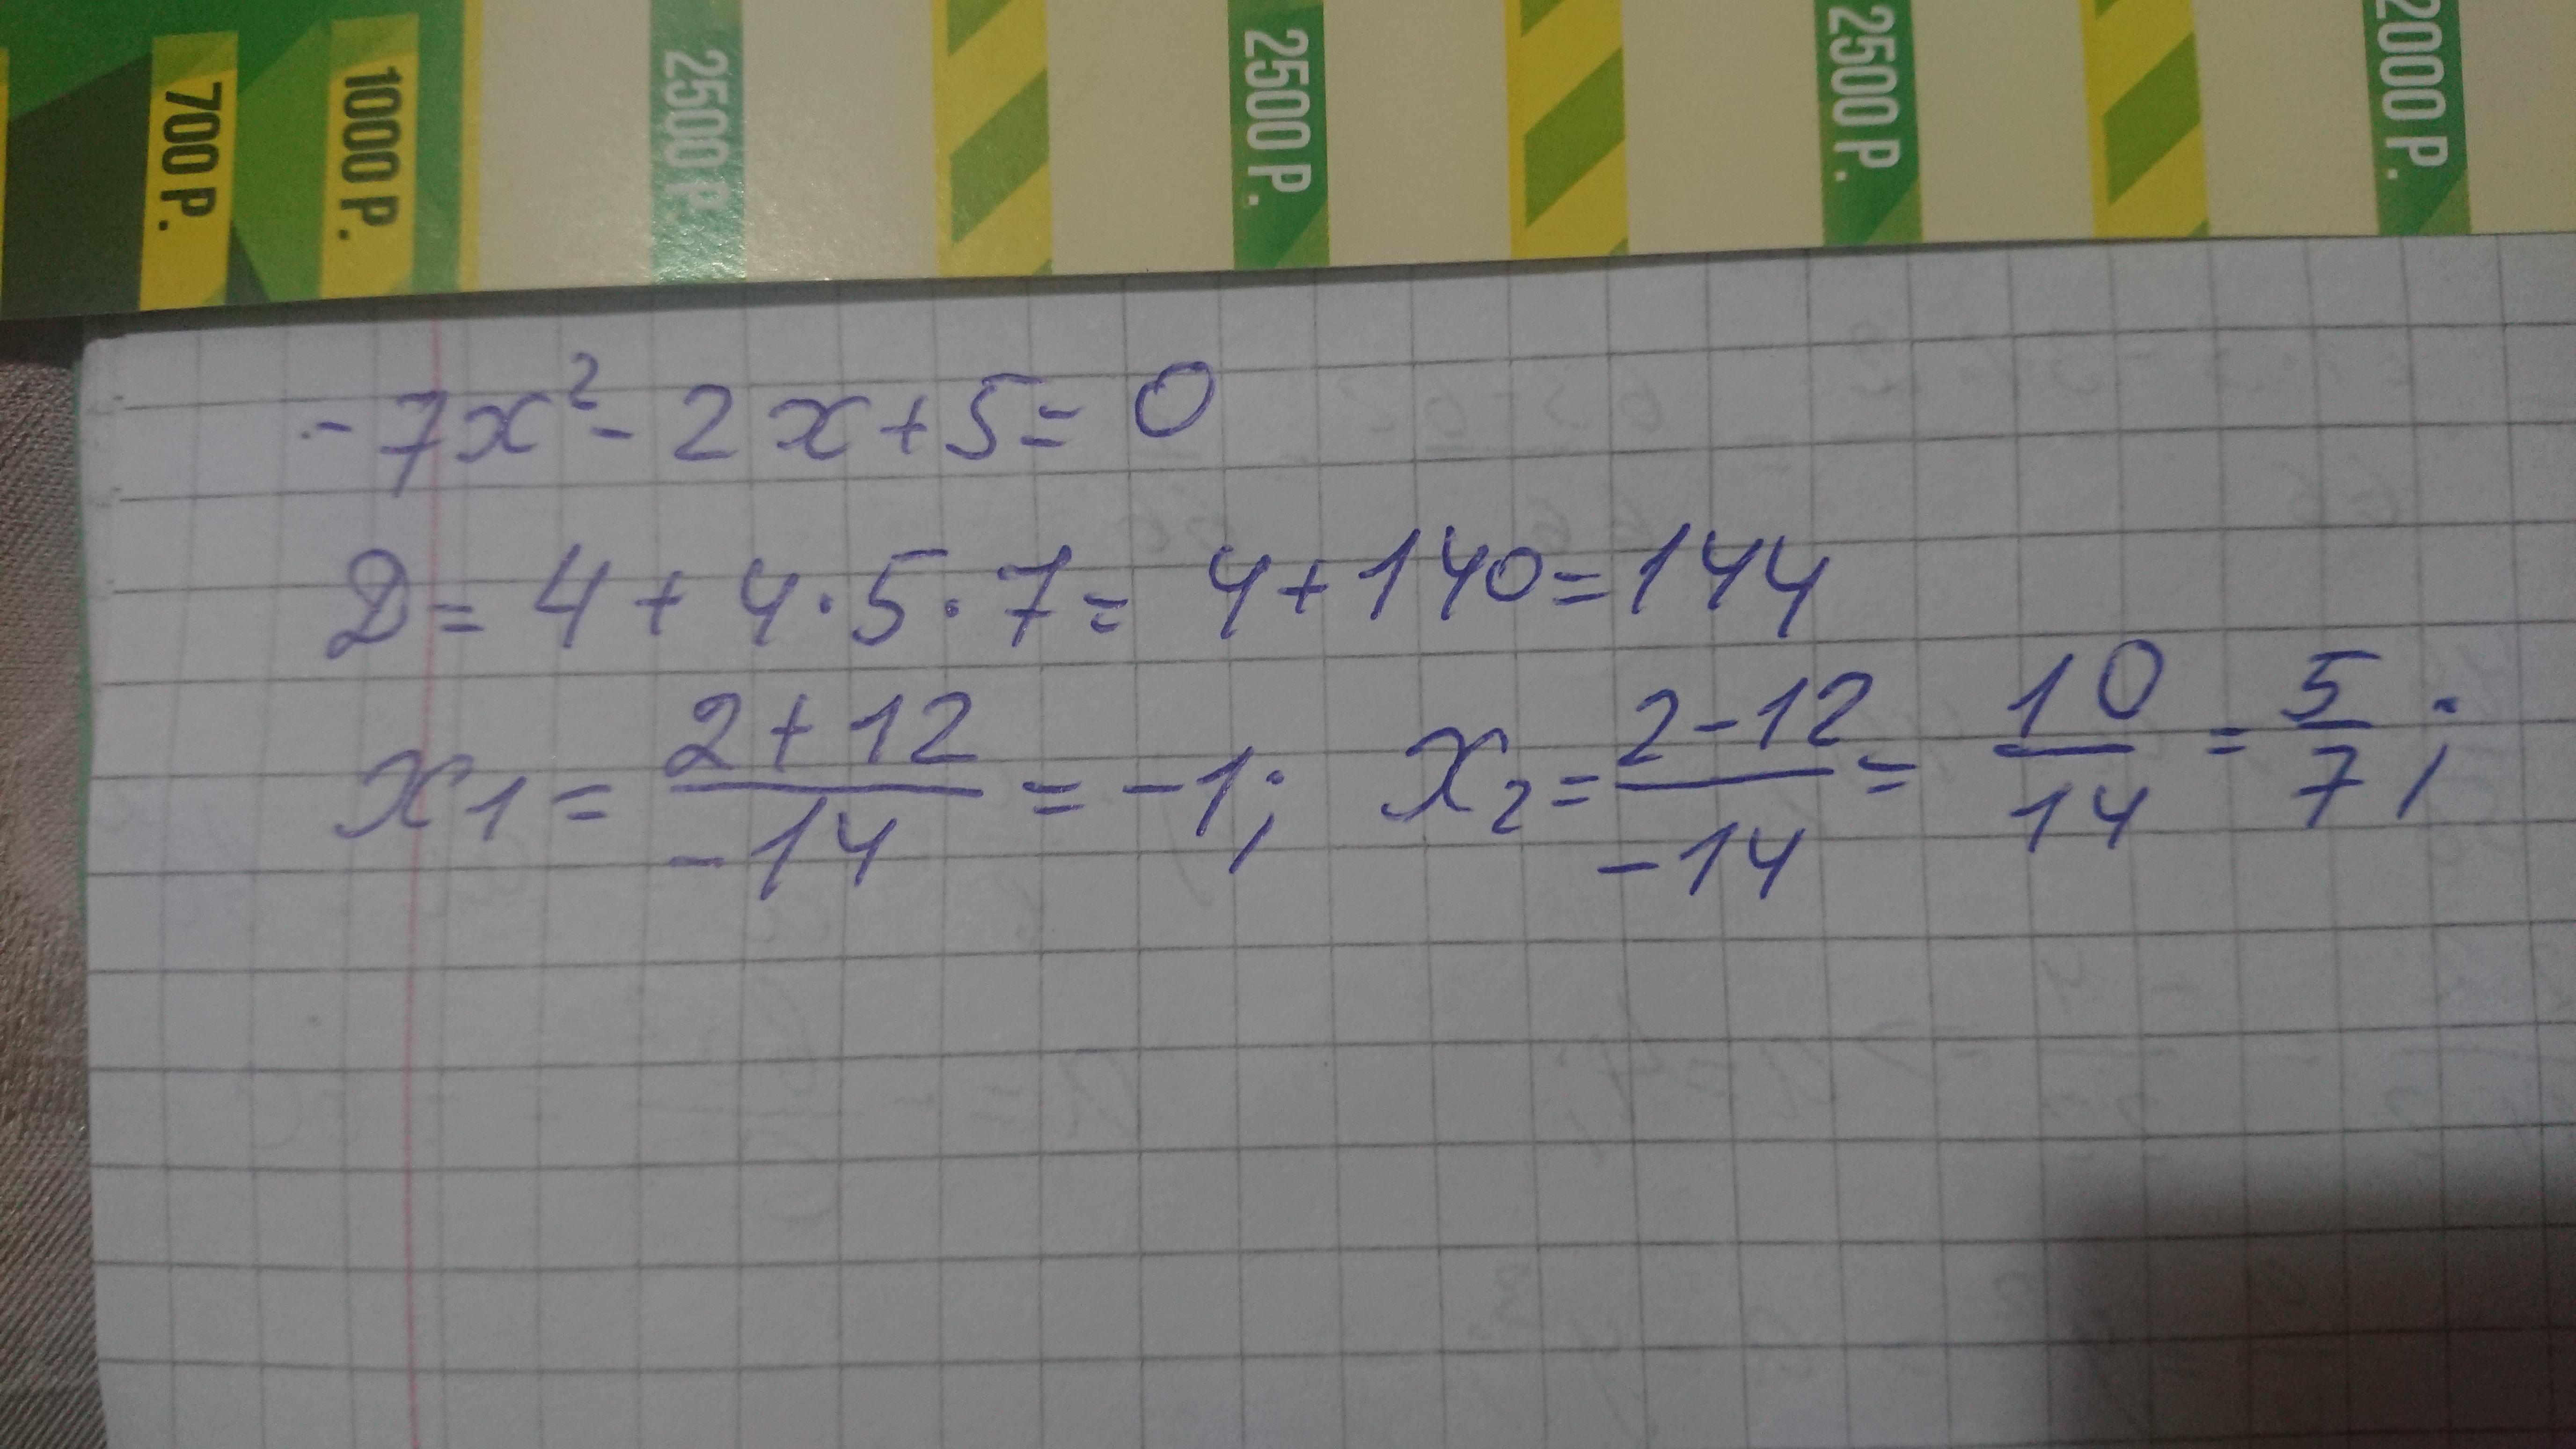 700 Р.
1000 Р.
2500 Р.
2500 Р.
2500 Р.
2000 Р.
-7x² - 2x + 5 = 0
D = 4 + 4 · 5 · 7 = 4 + 140 = 144
x₁ = (2 + 12)/(-14) = -1; x₂ = (2 - 12)/(-14) = 10/14 = 5/7;